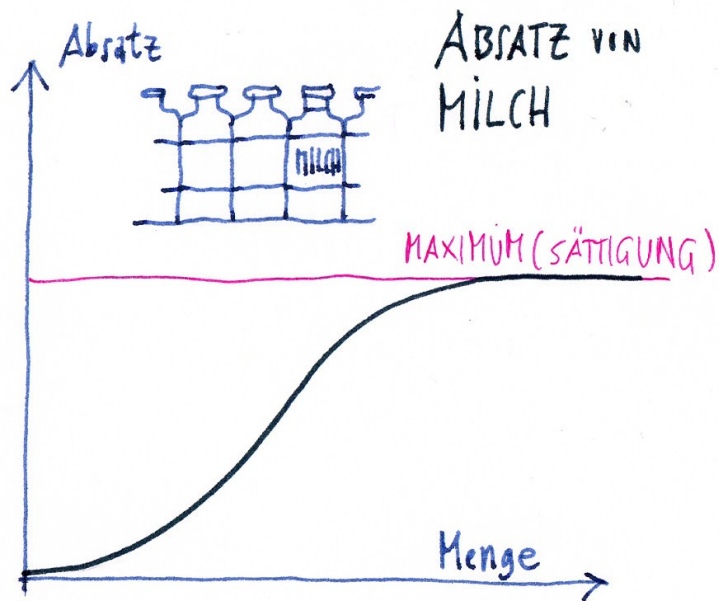 Absatz
ABSATZ VON
MILCH
MILCH
MAXIMUM (SÄTTIGUNG)
Menge